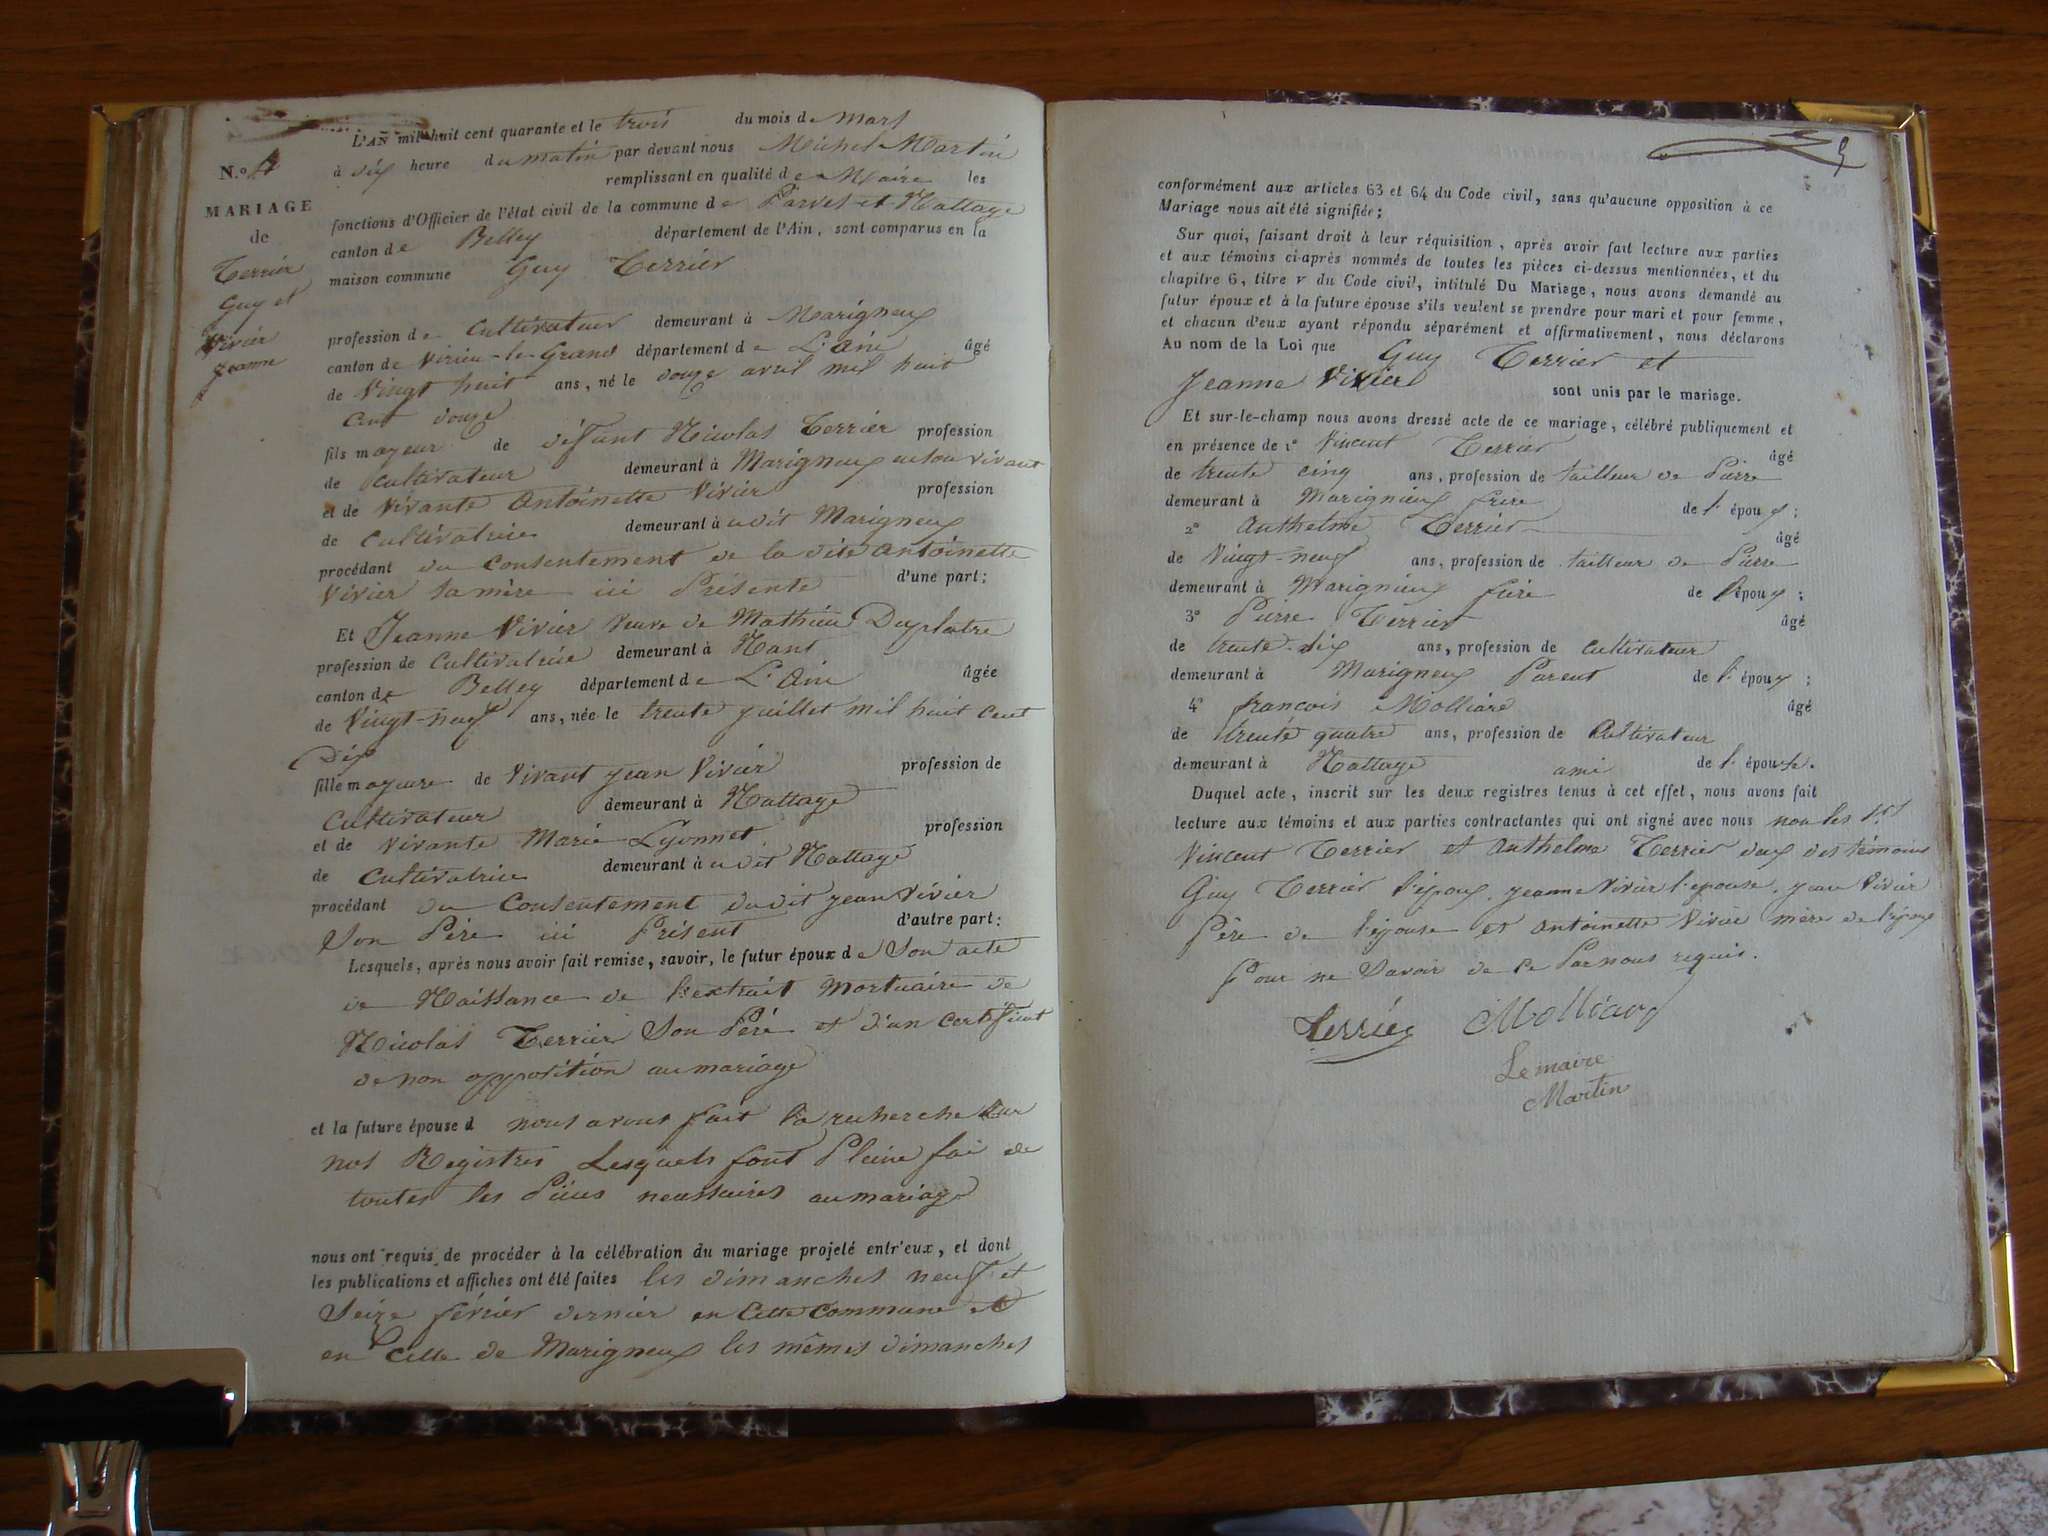 L'AN mil huit cent quarante et le trois du mois de Mars
à dix heure du matin par devant nous Michel Martin
N.o 4
remplissant en qualité de Maire les
MARIAGE
fonctions d'Officier de l'état civil de la commune de Parves et Nattage
de
canton de Belley département de l'Ain, sont comparus en la
Terrier
maison commune Guy Terrier
Guy et
Vivier
Jeanne
profession de Cultivateur demeurant à Marigneux
canton de Virieu-le-Grand département de L'Ain âgé
de Vingt huit ans, né le douze avril mil huit
cent douze
fils mayeur de défunt Nicolas Terrier profession
de cultivateur demeurant à Marigneux en son vivant
et de vivante Antoinette Vivier profession
de Cultivatrice demeurant à udit Marigneux
procédant du consentement de la dite Antoinette
Vivier sa mère ici Présente d'une part;
Et Jeanne Vivier Veuve de Mathieu Duplatre
profession de Cultivatrice demeurant à Nant
canton de Belley département de L'Ain âgée
de Vingt-neuf ans, née le trente juillet mil huit cent
Dix
fille mayeure de Vivant Jean Vivier profession de
Cultivateur demeurant à Nattage
et de vivante Marie Lyonnet profession
de Cultivatrice demeurant à udit Nattage
procédant du Consentement dudit jean Vivier
Son Père ici Présent d'autre part:
Lesquels, après nous avoir fait remise, savoir, le futur époux de Son acte
de Naissance de l'extrait Mortuaire de
Nicolas Terrier Son Père et d'un certificat
de non opposition au mariage
et la future épouse d nous avons fait la recherche Sur
nos Registres Lesquels font Pleine foi de
toutes les Pièces necessaires au mariage
nous ont requis de procéder à la célébration du mariage projeté entr'eux, et dont
les publications et affiches ont été faites les dimanches neuf et
Seize février dernier en Cette commune et
en Celle de Marigneux les mêmes dimanches
conformément aux articles 63 et 64 du Code civil, sans qu'aucune opposition à ce
Mariage nous ait été signifiée;
Sur quoi, faisant droit à leur réquisition, après avoir fait lecture aux parties
et aux témoins ci-après nommés de toutes les pièces ci-dessus mentionnées, et du
chapitre 6, titre v du Code civil, intitulé Du Mariage, nous avons demandé au
futur époux et à la future épouse s'ils veulent se prendre pour mari et pour femme,
et chacun d'eux ayant répondu séparément et affirmativement, nous déclarons
Au nom de la Loi que Guy Terrier et
Jeanne Vivier sont unis par le mariage.
Et sur-le-champ nous avons dressé acte de ce mariage, célébré publiquement et
en présence de 1º Vincent Terrier âgé
de trente cinq ans, profession de tailleur de Pierre
demeurant à Marignieux frère de l'époux;
2º Anthelme Terrier âgé
de Vingt-neuf ans, profession de tailleur de Pierre
demeurant à Marignieux frère de l'époux;
3º Pierre Terrier âgé
de trente-six ans, profession de cultivateur
demeurant à Marigneux Parent de l'époux;
4º françois Molliard âgé
de trente quatre ans, profession de Cultivateur
demeurant à Nattage ami de l'épouse.
Duquel acte, inscrit sur les deux registres tenus à cet effet, nous avons fait
lecture aux témoins et aux parties contractantes qui ont signé avec nous non les Srs
Vincent Terrier et Anthelme Terrier deux des témoins
Guy Terrier l'époux, jeanne Vivier l'epouse, jean Vivier
Père de l'épouse et Antoinette Vivier mère de l'époux
Pour ne Savoir de ce Par nous requis.
Terrier Molliard
Le maire
Martin